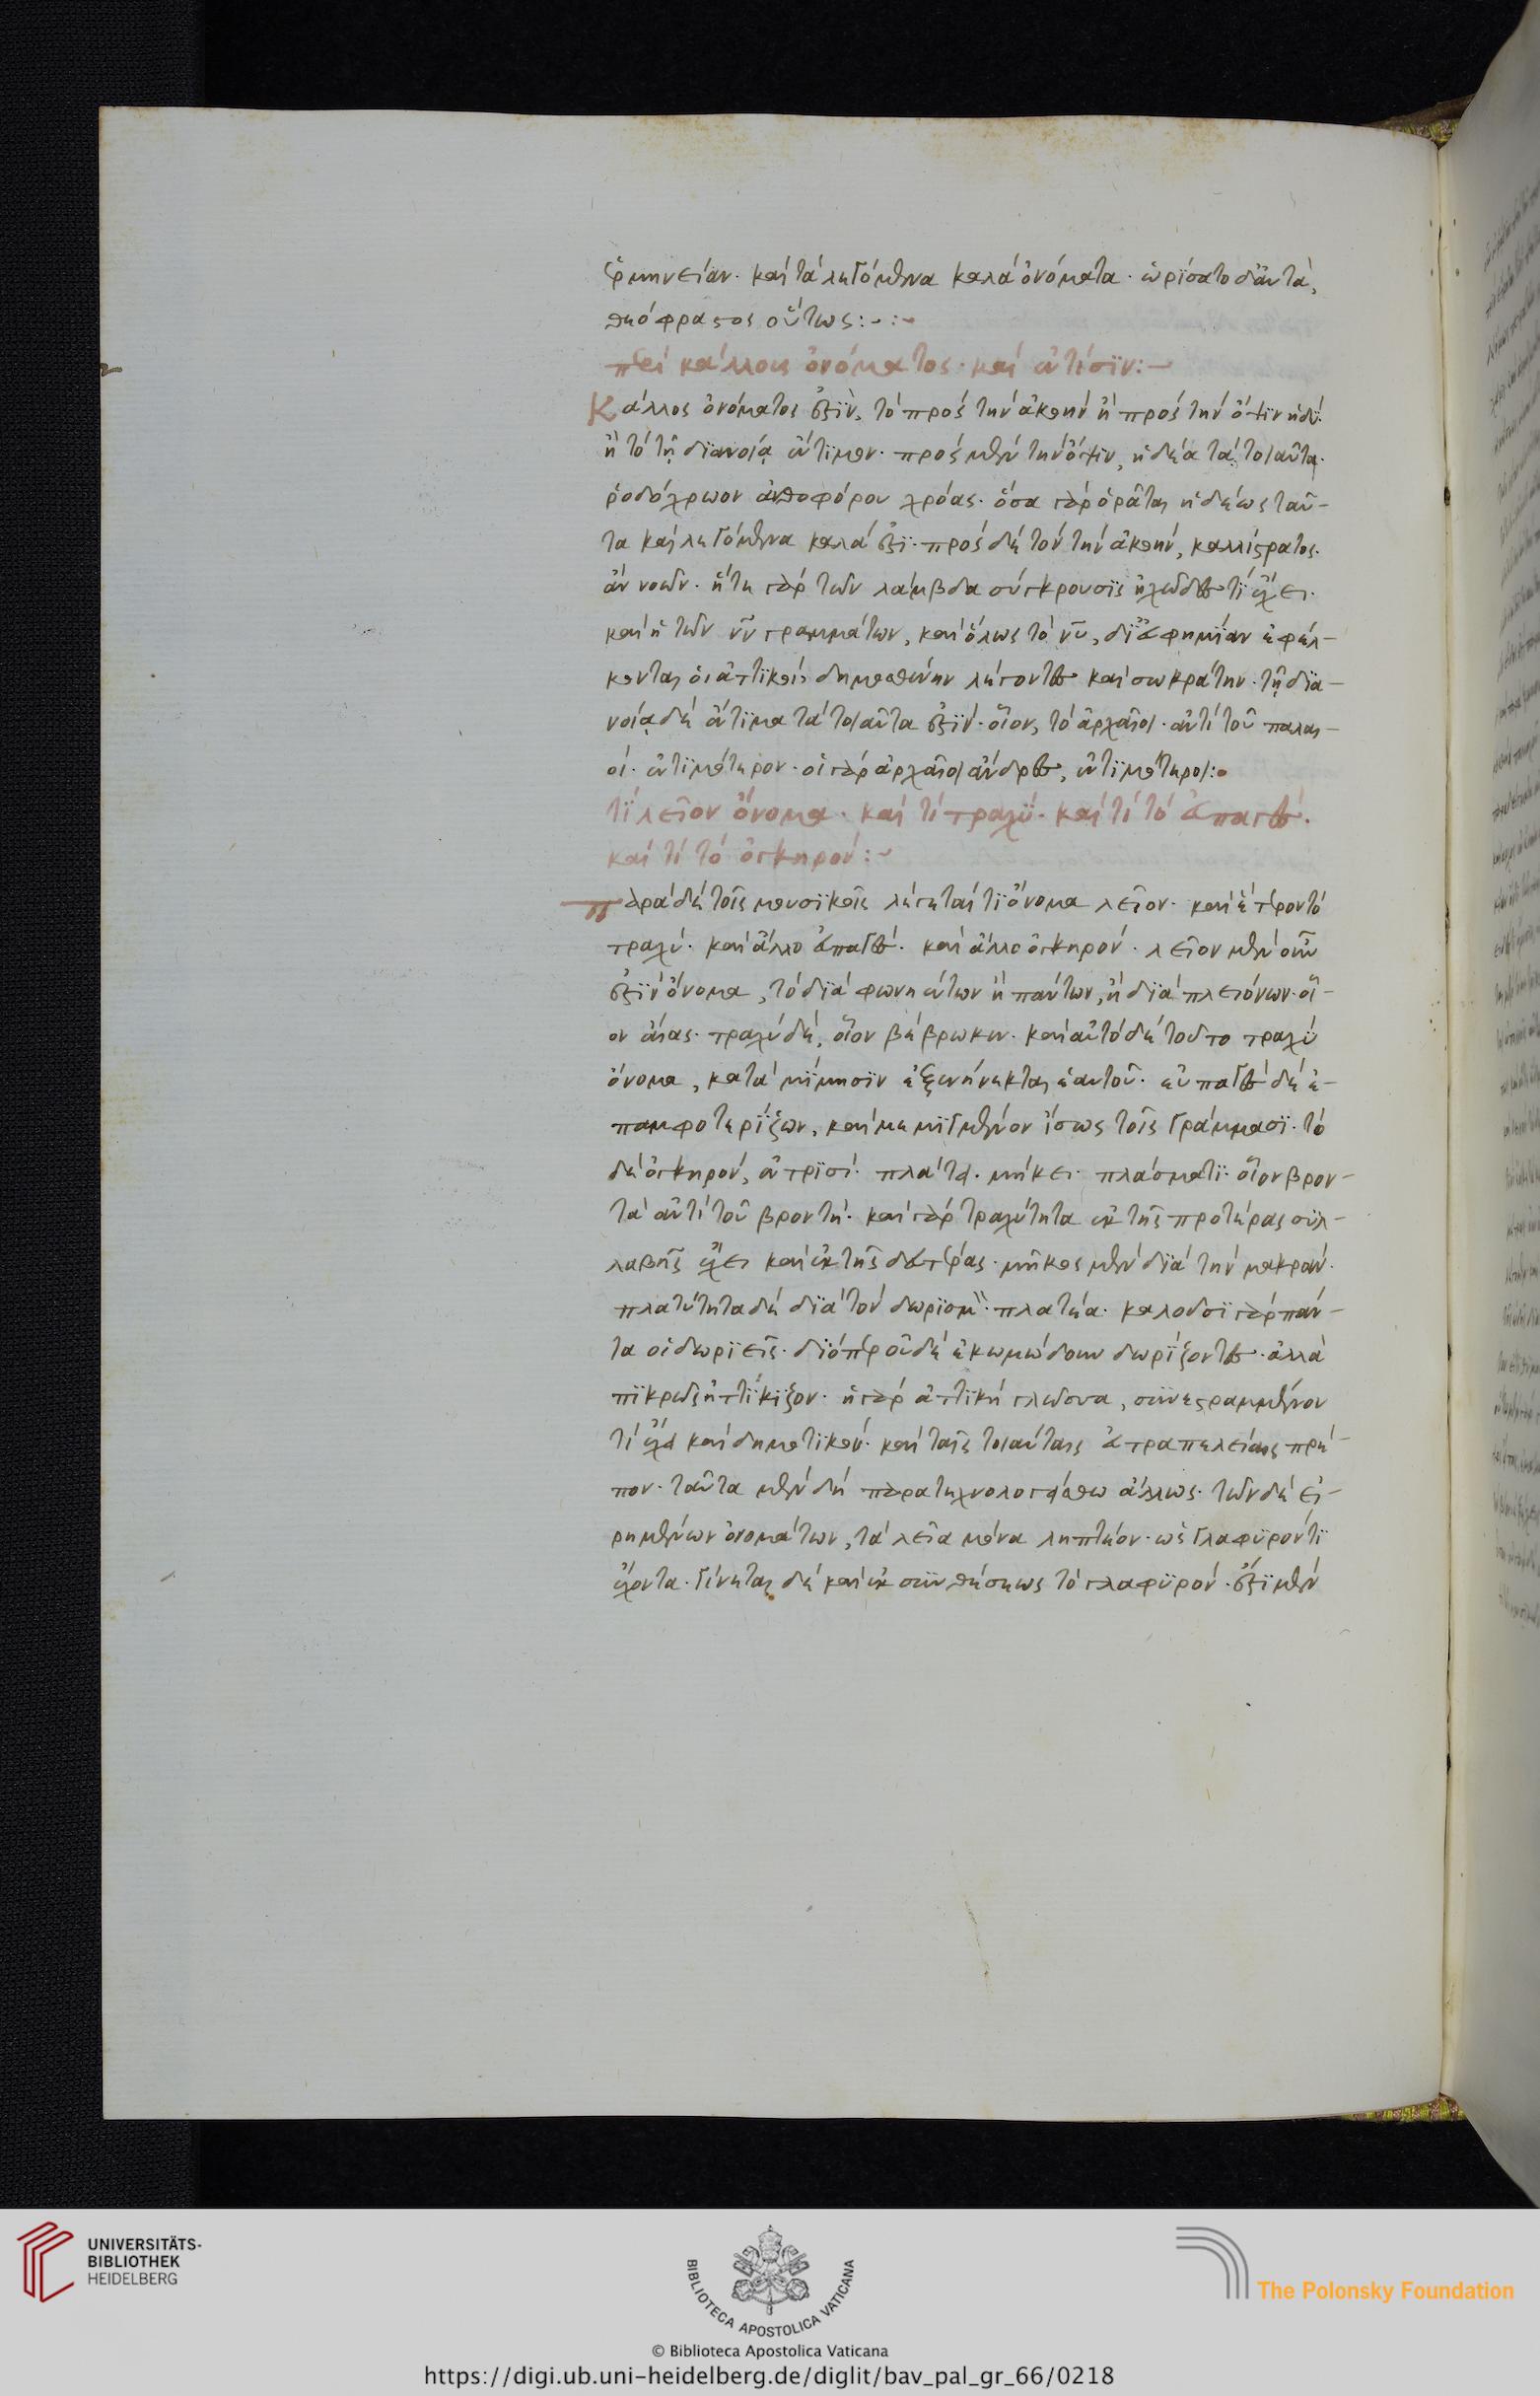 ἑρμηνείαν. καὶ τὰ λεγόμενα καλὰ ὀνόματα. ὡρίσατο δ' αὐτὰ,
θεόφραστος οὕτως:-:-
περὶ κάλλους ὀνόματος. καὶ τί ἐστιν:-
Κάλλος ὀνόματος ἐστὶν, τὸ πρὸς τὴν ἀκοὴν ἢ πρὸς τὴν ὄψιν ἡδύ.
ἢ τὸ τῇ διανοίᾳ ἔντιμον. πρὸς μὲν τὴν ὄψιν, ἡδέα τὰ τοιαῦτα.
ῥοδόχρωον ἀνθοφόρου χρόας. ὅσα γὰρ ὁρᾶται ἡδέως ταῦ-
τα καὶ λεγόμενα καλά ἐστι. πρὸς δὲ τὸν τὴν ἀκοὴν, καλλίστρατος.
ἀννοῶν. ἥ τε γὰρ τῶν λάμβδα σύγκρουσις ἠχῶδές τι ἔχει.
καὶ ἡ τῶν νῦ γραμμάτων, καὶ ὅλως τὸ νῦ, δι' εὐφημίαν ἐφέλ-
κονται οἱ ἀττικοὶ, δημοσθένην λέγοντες καὶ σωκράτην. τῇ δια-
νοίᾳ δὲ ἔντιμα τὰ τοιαῦτά ἐστιν. οἷον, τὸ ἀρχαῖοι. ἀντὶ τοῦ παλαι-
οί. ἐντιμότερον. οἱ γὰρ ἀρχαῖοι ἄνδρες, ἐντιμότεροι:.
τί λεῖον ὄνομα. καὶ τί τραχύ. καὶ τί τὸ εὐπαγές.
καὶ τί τὸ ὀγκηρόν:-
Παρὰ δὲ τοῖς μουσικοῖς λέγεταί τι ὄνομα λεῖον. καὶ ἕτερον τὸ
τραχύ. καὶ ἄλλο εὐπαγές. καὶ ἄλλο ὀγκηρόν. λεῖον μὲν οὖν
ἐστὶν ὄνομα, τὸ διὰ φωνηέντων ἢ πάντων, ἢ διὰ πλειόνων. οἷ-
ον αἴας. τραχὺ δὲ, οἷον βέβρωκεν. καὶ αὐτὸ δὲ τοῦτο τραχὺ
ὄνομα, κατὰ μίμησιν ἐξενήνεκται ἑαυτοῦ. εὐπαγὲς δὲ ἐ-
παμφοτερίζων, καὶ μεμιγμένον ἴσως τοῖς γράμμασι. τὸ
δὲ ὀγκηρόν, ἐν τρισί. πλάτει. μήκει. πλάσματι. οἷον βρον-
τὰ ἀντὶ τοῦ βροντή. καὶ γὰρ τραχύτητα ἐκ τῆς προτέρας συλ-
λαβῆς ἔχει καὶ ἐκ τῆς δευτέρας. μῆκος μὲν διὰ τὴν μακράν.
πλατύτητα δὲ διὰ τὸν δωρισμόν. πλατέα. καλοῦσι γὰρ πάν-
τα οἱ δωριεῖς. διόπερ οὐδὲ ἐκωμώδουν δωρίζοντες. ἀλλὰ
πικρῶς ἠττίκιζον. ἡ γὰρ ἀττικὴ γλῶσσα, συνεστραμμένον
τι ἔχει καὶ δημοτικόν. καὶ ταῖς τοιαύταις εὐτραπελείαις πρέ-
πον. ταῦτα μὲν δὴ παρατεχνολογείσθω ἄλλως. τῶν δὲ εἰ-
ρημένων ὀνομάτων, τὰ λεῖα μόνα ληπτέον. ὡς γλαφυρόν τι
ἔχοντα. γίνεται δὲ καὶ ἐκ συνθέσεως τὸ γλαφυρόν. ἔστι μὲν
UNIVERSITÄTS-
BIBLIOTHEK
HEIDELBERG
BIBLIOTECA APOSTOLICA VATICANA
The Polonsky Foundation
© Biblioteca Apostolica Vaticana
https://digi.ub.uni-heidelberg.de/diglit/bav_pal_gr_66/0218